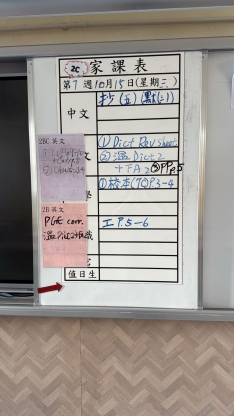 2C 家課表
第7週10月15日(星期三)
中文
抄(五)
(1) Dict Rev sheet
(2) 溫 Dict 2
+ TA 2 (3) PP.5
(1) 校本(TC)P.3-4
工 P.5-6
2BC 英文
2B 英文
PGE corr.
溫 Dict 2
值日生